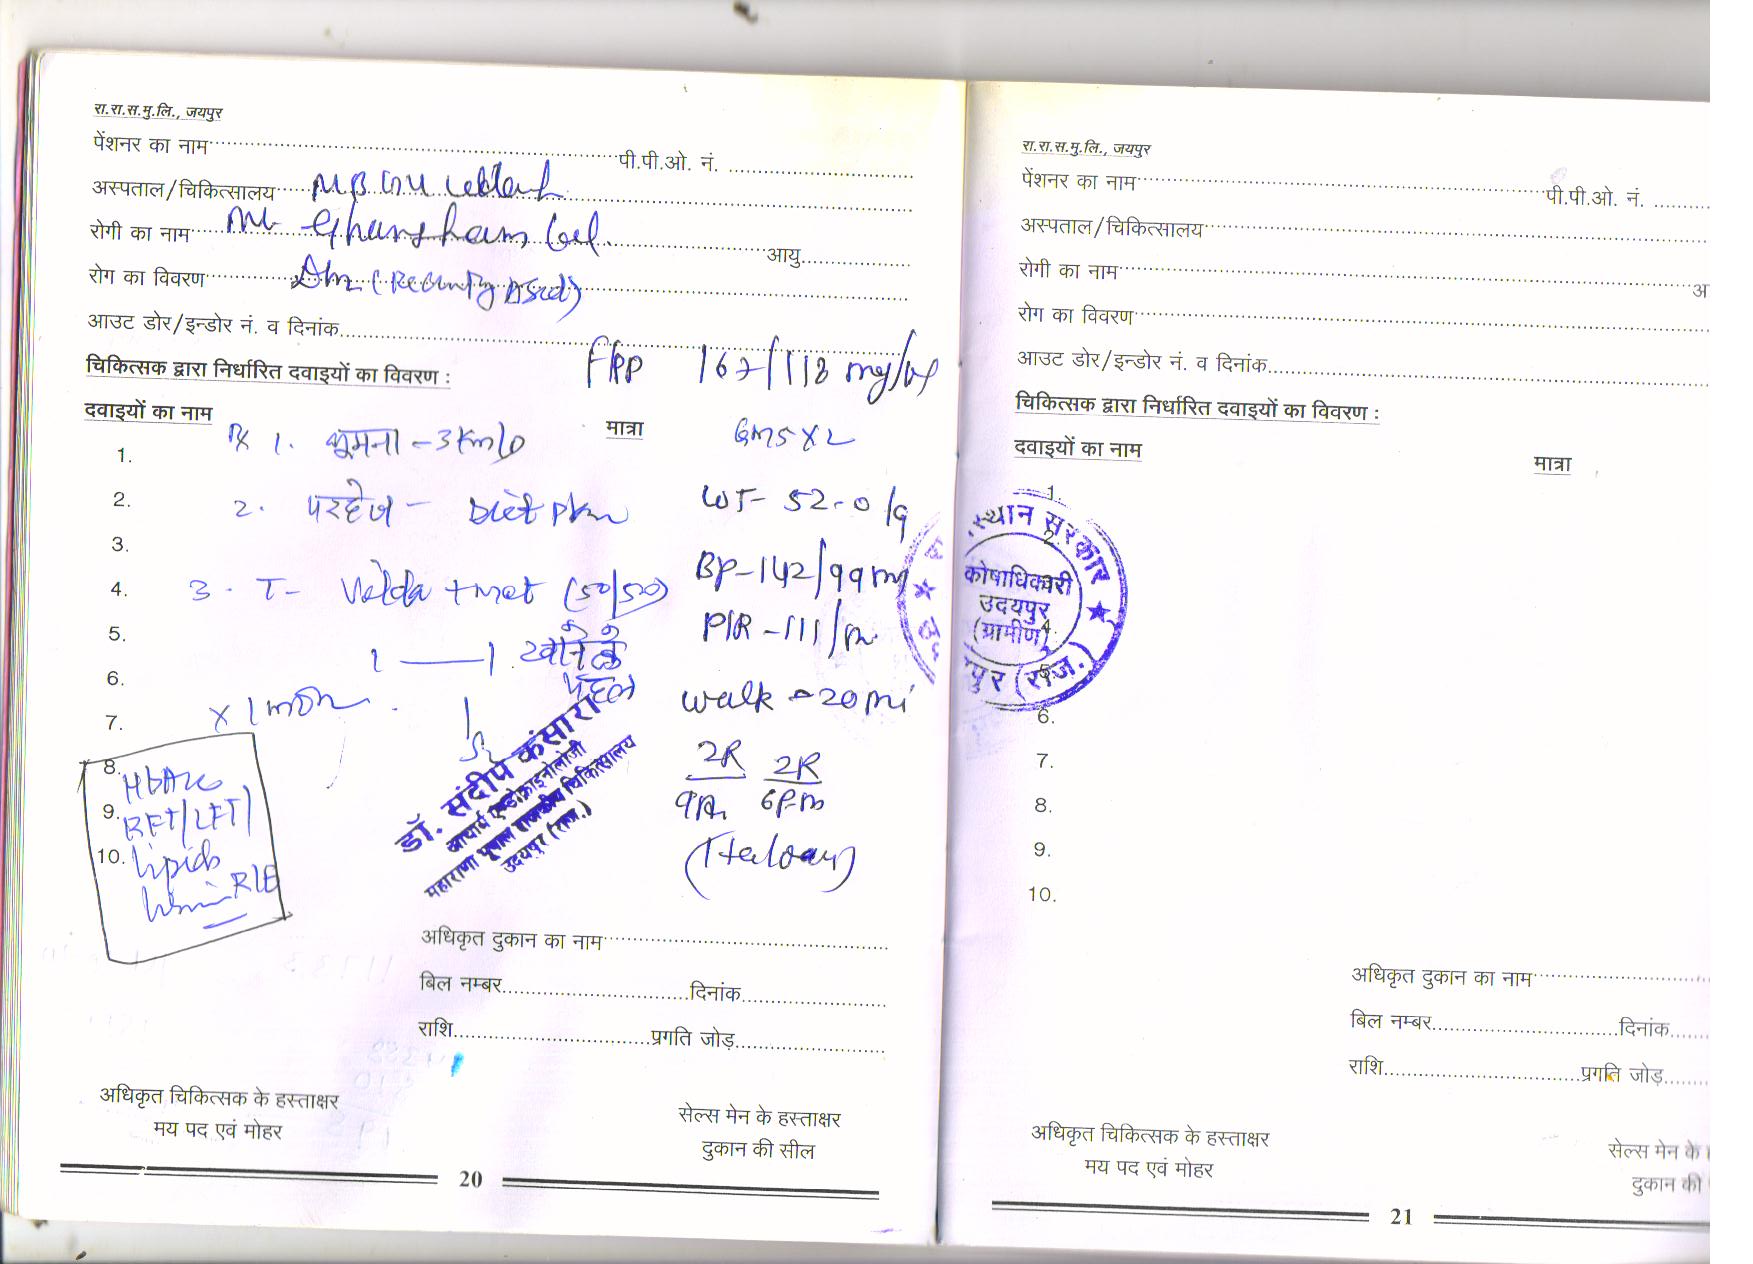 रा.रा.स.मु.लि., जयपुर
पेंशनर का नाम.......... पी.पी.ओ. नं. ..........
अस्पताल/चिकित्सालय MB
रोगी का नाम Mr Ghansham Lal आयु..........
रोग का विवरण DM (Recently
आउट डोर/इन्डोर नं. व दिनांक..........
चिकित्सक द्वारा निर्धारित दवाइयों का विवरण :
167/118 mg/dl
दवाइयों का नाम
मात्रा
GMSX2
Rx 1. घूमना - 3 Km/D
2. परहेज - Diet Plan
WT- 52.0
3. T- Velda + met (50/500)
BP-142/99 m
P/R -111/m
1 —— 1 खाने के पहले
x 1 month
walk - 20 mi
2R 2R
9 6 P.m
1.
2.
3.
4.
5.
6.
7.
8.
9.
10.
HbA1c
RFT/LFT/
lipids
R/E
डॉ. संदीप कंसारा
आचार्य एण्डोक्राइनोलोजी
महाराणा भूपाल राजकीय चिकित्सालय
उदयपुर (राज.)
अधिकृत दुकान का नाम..........
बिल नम्बर..........दिनांक..........
राशि..........प्रगति जोड़..........
अधिकृत चिकित्सक के हस्ताक्षर
मय पद एवं मोहर
सेल्स मेन के हस्ताक्षर
दुकान की सील
20
रा.रा.स.मु.लि., जयपुर
पेंशनर का नाम.......... पी.पी.ओ. नं. ..........
अस्पताल/चिकित्सालय..........
रोगी का नाम.......... अ
रोग का विवरण..........
आउट डोर/इन्डोर नं. व दिनांक..........
चिकित्सक द्वारा निर्धारित दवाइयों का विवरण :
दवाइयों का नाम
मात्रा
1.
2.
4.
5.
6.
7.
8.
9.
10.
स्थान सरकार
कोषाधिकारी
उदयपुर
(ग्रामीण)
पुर (राज.)
अधिकृत दुकान का नाम..........
बिल नम्बर..........दिनांक..........
राशि..........प्रगति जोड़..........
अधिकृत चिकित्सक के हस्ताक्षर
मय पद एवं मोहर
सेल्स मेन के
दुकान की
21